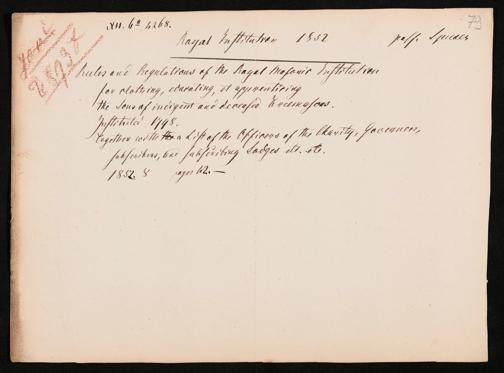 XII. 6ª 4268. 79
Royal Institution 1852 poss. Spencer
Rules and Regulations of the Royal Masonic Institution
for clothing, educating, et apprenticing
the Sons of indigent and deceased Freemasons.
Instituted 1798.
together with a List of the Officers of the Charity, Governors,
subscribers, and subscribing Lodges etc. etc.
1852. 8 pages 62. —